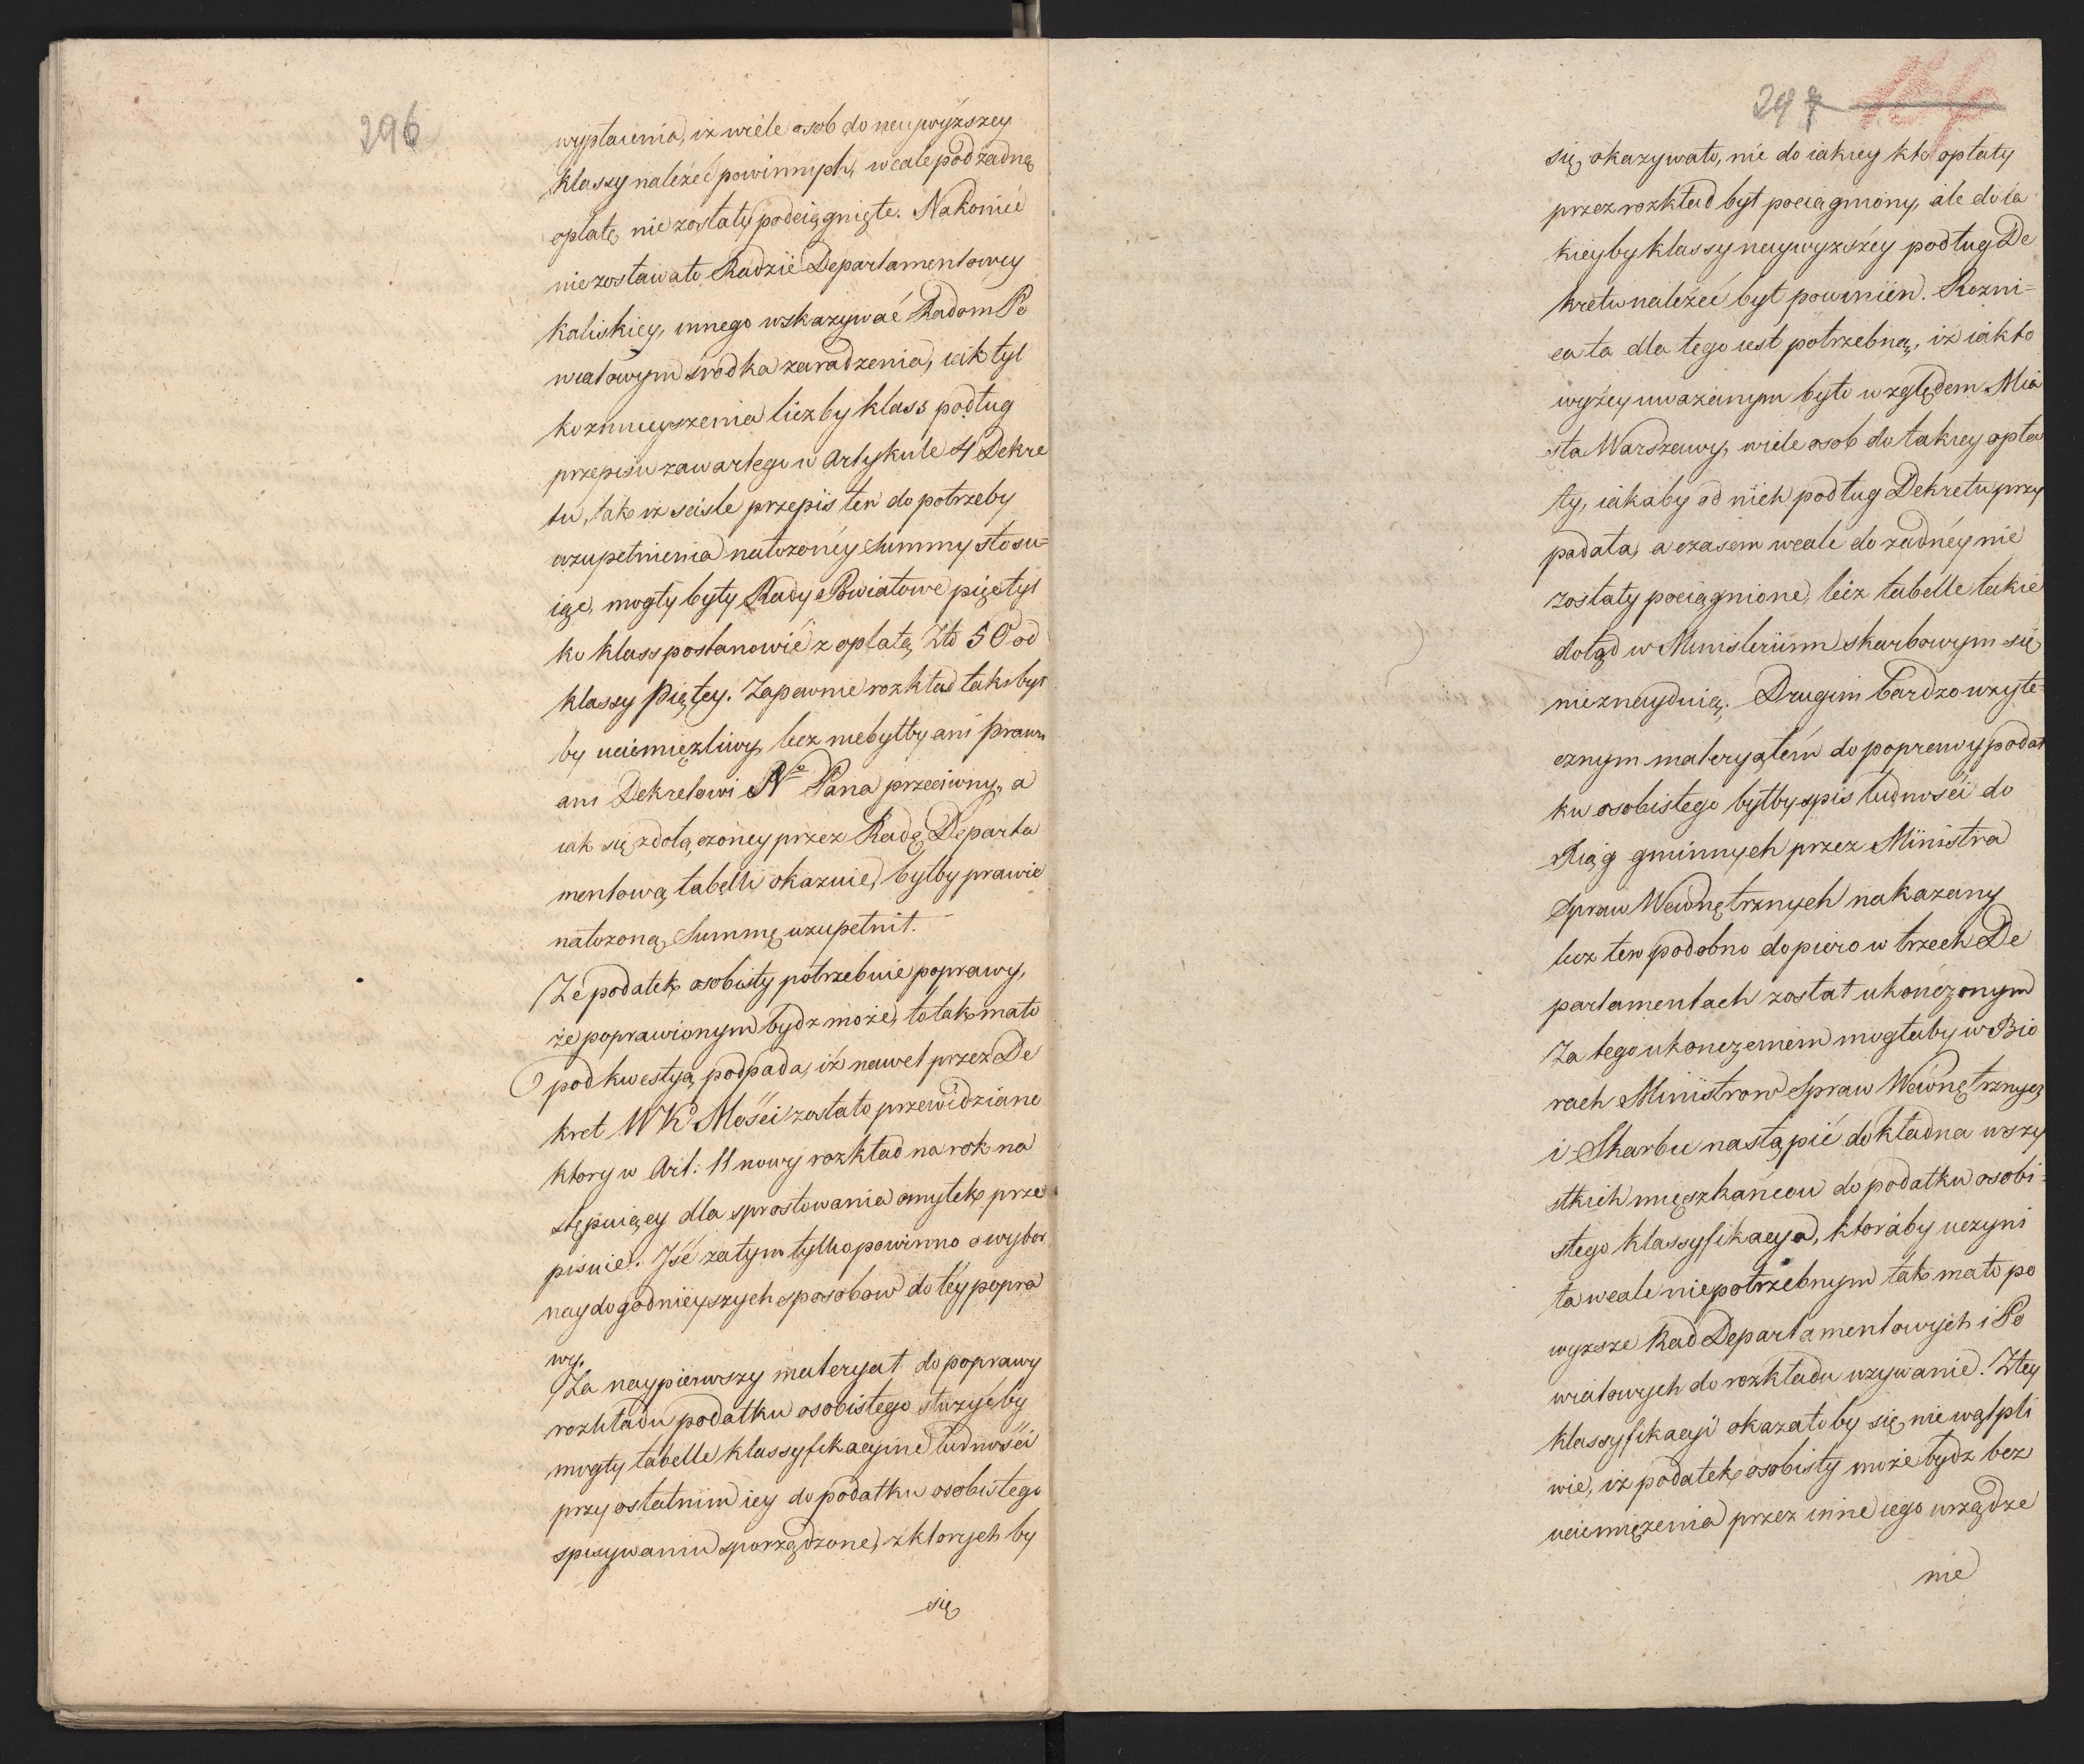 296
wypłacenia, iż wiele osob do naywyższey
klassy należeć powinnych, wcale pod żadną
opłatę nie zostały podciągnięte. Nakoniec
nie zostawało Radzie Departamentowey
Kaliskiey, innego wskazywać Radom Po
wiatowym środka zaradzenia, iak tyl
ko zmnieyszenia liczby klass podług
przepisu zawartego w Artykule 4 Dekre
tu, tak iż ściśle przepis ten do potrzeby
uzupełnienia nałożoney Summy stosu=
iąc, mogły były Rady Powiatowe pięć tyl
ko klass postanowić z opłatą Złł 50 od
klassy Piątey. Zapewnie rozkład taki był
by uciemiężliwy, lecz niebyłby ani prawu
ani Dekretowi Nº Pana przeciwny, a
iak się z dołączoney przez Radę Departa
mentową tabelli okazuie, byłby prawie
nałożoną Summę uzupełnił.
Że podatek osobisty potrzebuie poprawy,
że poprawionym bydz może, to tak mało
pod kwestyą podpada, iż nawet przez De
kret WK Mości zostało przewidziane
ktory w Art: 11 nowy rozkład na rok na
stępuiący dla sprostowania omyłek prze
pisuie. Iść zatym tylko powinno o wybor
naydogodnieyszych sposobow do tey popra
wy.
Za naypierwszy materyał do poprawy
rozkładu podatku osobistego służyćby
mogły tabelle klassyfikacyine ludności
przy ostatnim iey do podatku osobistego
spisywaniu sporządzone, z ktorych by
się
297
się okazywało, nie do iakiey kto opłaty
przez rozkład był pociągniony, ale do ia
kieyby klassy naywyższey podług De
kretu należeć był powinien. Rożni=
ca ta dla tego iest potrzebną, iż iak to
wyżey uważanym było względem Mia
sta Warszawy, wiele osob do takiey opła
ty, iakaby od nich podług Dekretu przy
padała, a czasem wcale do żadney nie
zostały pociągnione, lecz tabelle takie
dotąd w Ministerium skarbowym się
nieznayduią. Drugim bardzo użyte=
cznym materyałem do poprawy podat
ku osobistego byłby spis ludności do
Xiąg gminnych przez Ministra
Spraw Wewnętrznych nakazany
lecz ten podobno dopiero w trzech De
partamentach został ukończonym
Za tego ukończeniem mogłaby w Bio
rach Ministrow Spraw Wewnętrznych
i Skarbu nastąpić dokładna wszy
stkich mięszkańcow do podatku osobi=
stego klassyfikacya, ktoraby uczyni
ła wcale niepotrzebnym tak mało po
wyższe Rad Departamentowych i Po
wiatowych do rozkładu używanie. Z tey
klassyfikacyi okazałoby się niewątpli
wie, iż podatek osobisty może bydz bez
uciemiężenia przez inne iego urządze
nie